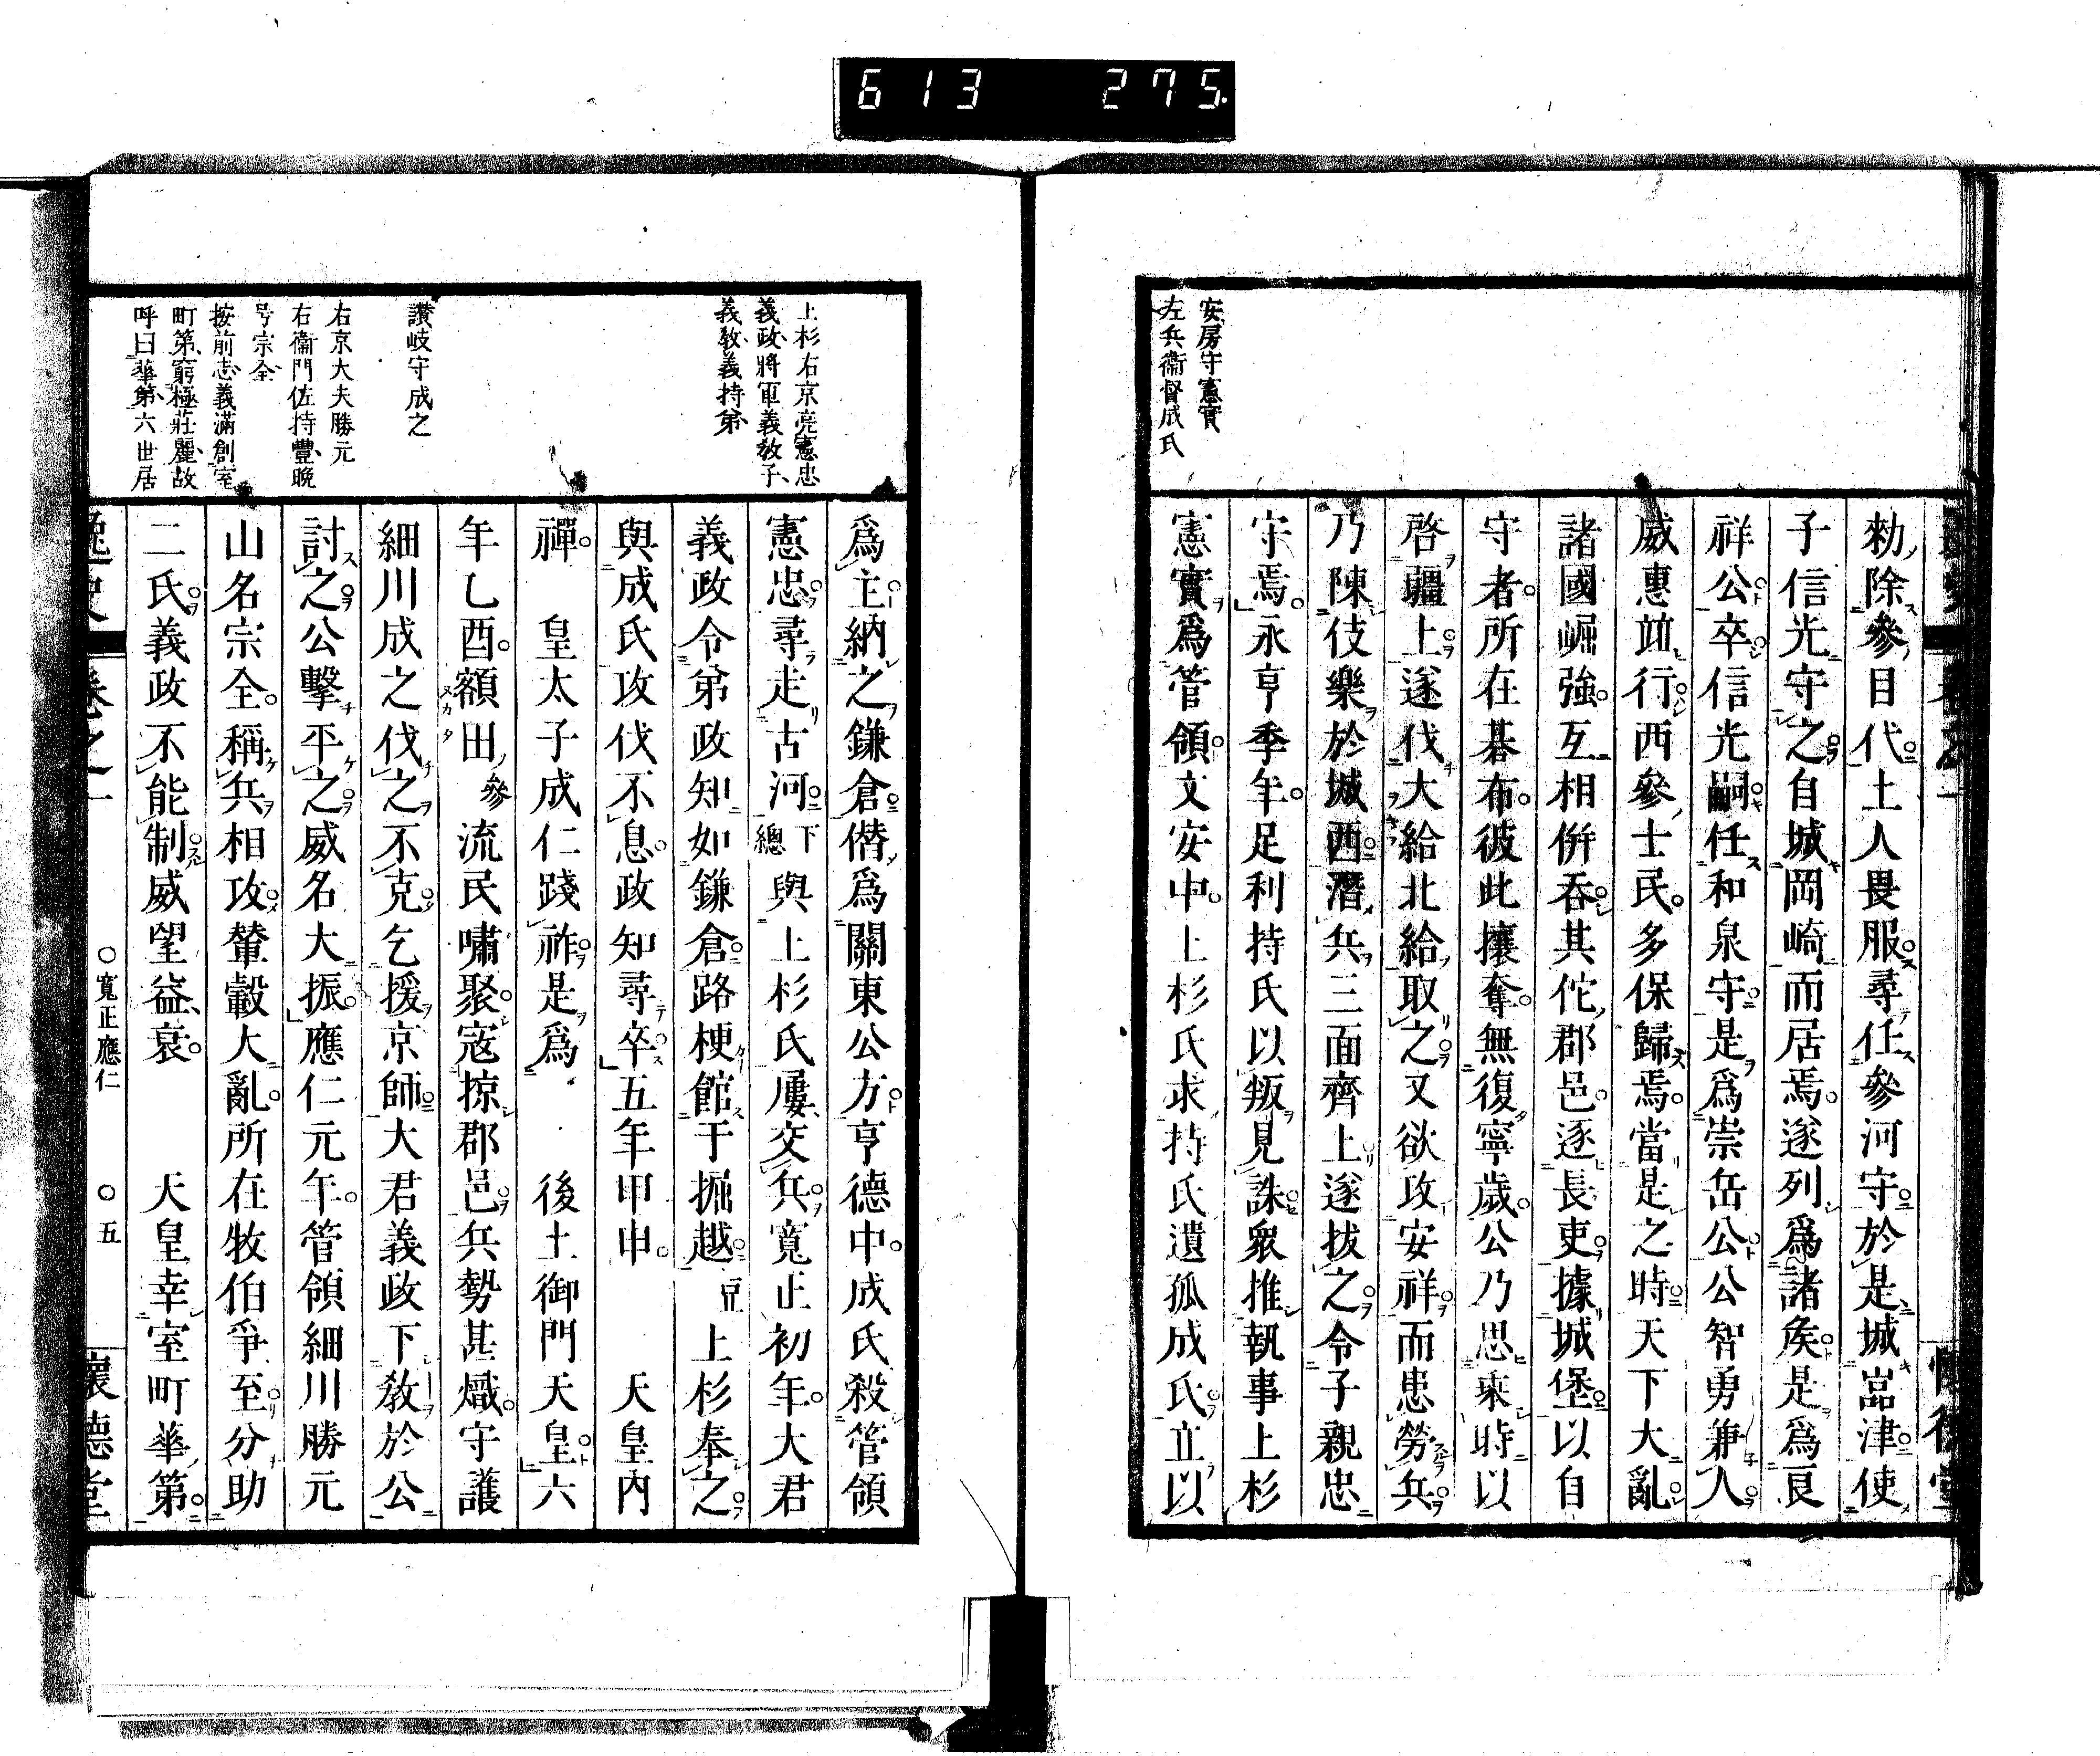 613 275
安房守憲實
左兵衞督成氏
勑除參目代土人畏服尋任參河守於是城嵓津使
子信光守之自城岡崎而居焉遂列爲諸矦是爲良
祥公卒信光嗣任和泉守是爲崇岳公公智勇兼人
威惠竝行西參士民多保歸焉當是之時天下大亂
諸國崛強互相併吞其佗郡邑逐長吏據城堡以自
守者所在棊布彼此攘奪無復寧歲公乃思乘時以
啓疆上遂伐大給北給取之又欲攻安祥而患勞兵
乃陳伎樂於城西潛兵三面齊上遂拔之令子親忠
守焉永亨季年足利持氏以叛見誅衆推執事上杉
憲實爲管領文安中上杉氏求持氏遺孤成氏立以
上杉右京亮憲忠
義政將軍義敎子
義敎義持弟
讃岐守成之
右京大夫勝元
右衞門佐持豐晚
号宗全
按前志義滿創室
町第窮極莊麗故
呼曰華第六世居
爲主納之鎌倉僭爲關東公方亨德中成氏殺管領
憲忠尋走古河下總與上杉氏屢交兵寬正初年大君
義政令弟政知如鎌倉路梗館于掘越豆上杉奉之
與成氏攻伐不息政知尋卒五年甲申 天皇內
禪 皇太子成仁踐祚是爲 後土御門天皇六
年乙酉額田參流民嘯聚寇掠郡邑兵勢甚熾守護
細川成之伐之不克乞援京師大君義政下敎於公
討之公擊平之威名大振應仁元年管領細川勝元
山名宗全稱兵相攻輦轂大亂所在牧伯爭至分助
二氏義政不能制威望益衰 天皇幸室町華第
逸史 卷之一 ○寬正應仁 ○五 懷德堂